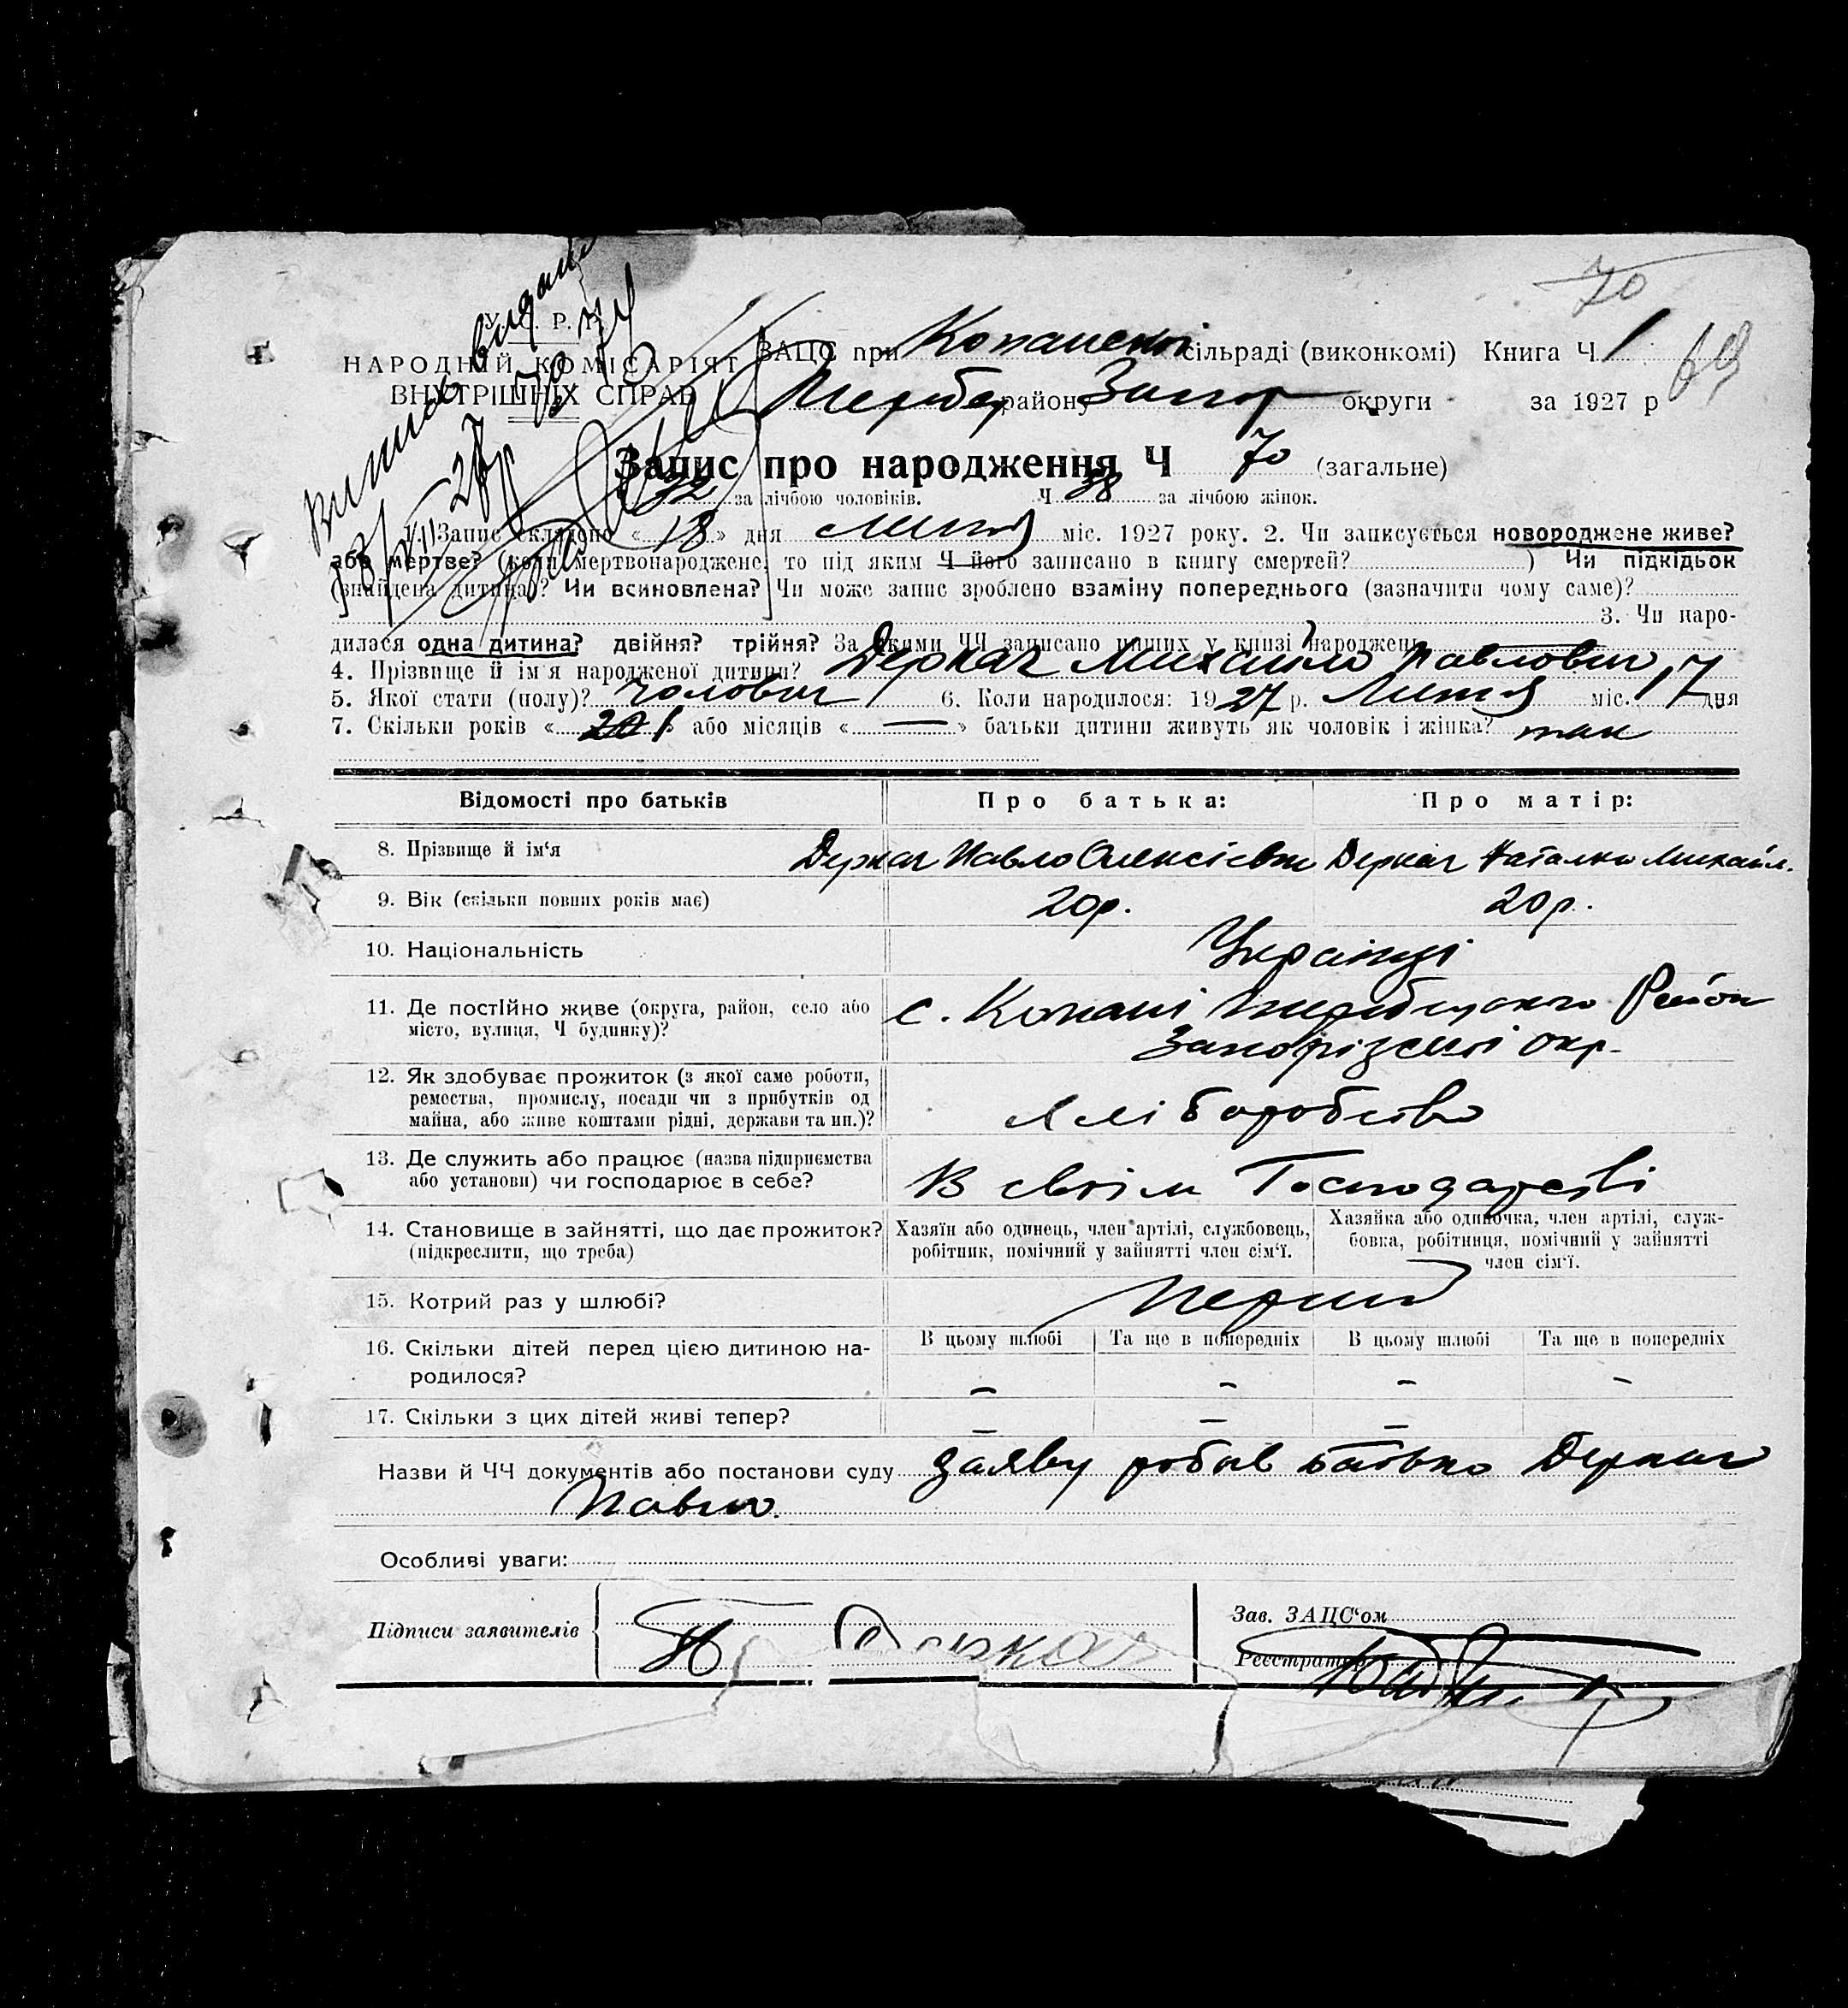 70
69
Випись видана
У. С. Р. Р.
НАРОДНІЙ КОМІСАРІЯТ
ВНУТРІШНІХ СПРАВ
ЗАЦС при Копанскі сільраді (виконкомі) Книга Ч 1
району Запор округи за 1927 р
Запис про народження Ч 70 (загальне)
32 за лічбою чоловіків. Ч 38 за лічбою жінок.
1. Запис складено « 18 » дня Липня міс. 1927 року. 2. Чи записується новороджене живе?
або мертве? (коли мертвонароджене, то під яким Ч його записано в книгу смертей? ) Чи підкідьок
(знайдена дитина)? Чи всиновлена? Чи може запис зроблено взаміну попереднього (зазначити чому саме)?
3. Чи наро-
дилася одна дитина? двійня? трійня? За якими ЧЧ записано инших у книзі народжень
4. Прізвище й ім'я народженої дитини? Деркач Михайло Павлович
5. Якої стати (полу)? чоловіч 6. Коли народилося: 1927 р. Липня міс. 17 дня
7. Скільки років « 1 » або місяців « — » батьки дитини живуть як чоловік і жінка? так
Відомості про батьків Про батька: Про матір:
8. Прізвище й ім'я Деркач Павло Олексієвич Деркач Наталка Михайл.
9. Вік (скільки повних років має) 20р. 20р.
10. Національність Українці
11. Де постійно живе (округа, район, село або с. Копані Район
місто, вулиця, Ч будинку)? Запорізскої окр.
12. Як здобуває прожиток (з якої саме роботи,
ремества, промислу, посади чи з прибутків од
майна, або живе коштами рідні, держави та ин.)? Хліборобство
13. Де служить або працює (назва підприємства
або установи) чи господарює в себе? В своїм Господарстві
14. Становище в зайнятті, що дає прожиток? Хазяїн або одинець, член артілі, службовець, Хазяйка або одиночка, член артілі, служ-
(підкреслити, що треба) робітник, помічний у зайнятті член сім'ї. бовка, робітниця, помічний у зайнятті
член сім'ї.
15. Котрий раз у шлюбі? Перший
16. Скільки дітей перед цією дитиною на- В цьому шлюбі Та ще в попередніх В цьому шлюбі Та ще в попередніх
родилося? – – – –
17. Скільки з цих дітей живі тепер? – – –
Назви й ЧЧ документів або постанови суду заяву робив батько Деркач
Павло.
Особливі уваги:
Підписи заявителів Деркач
Зав. ЗАЦС'ом
Реєстратор